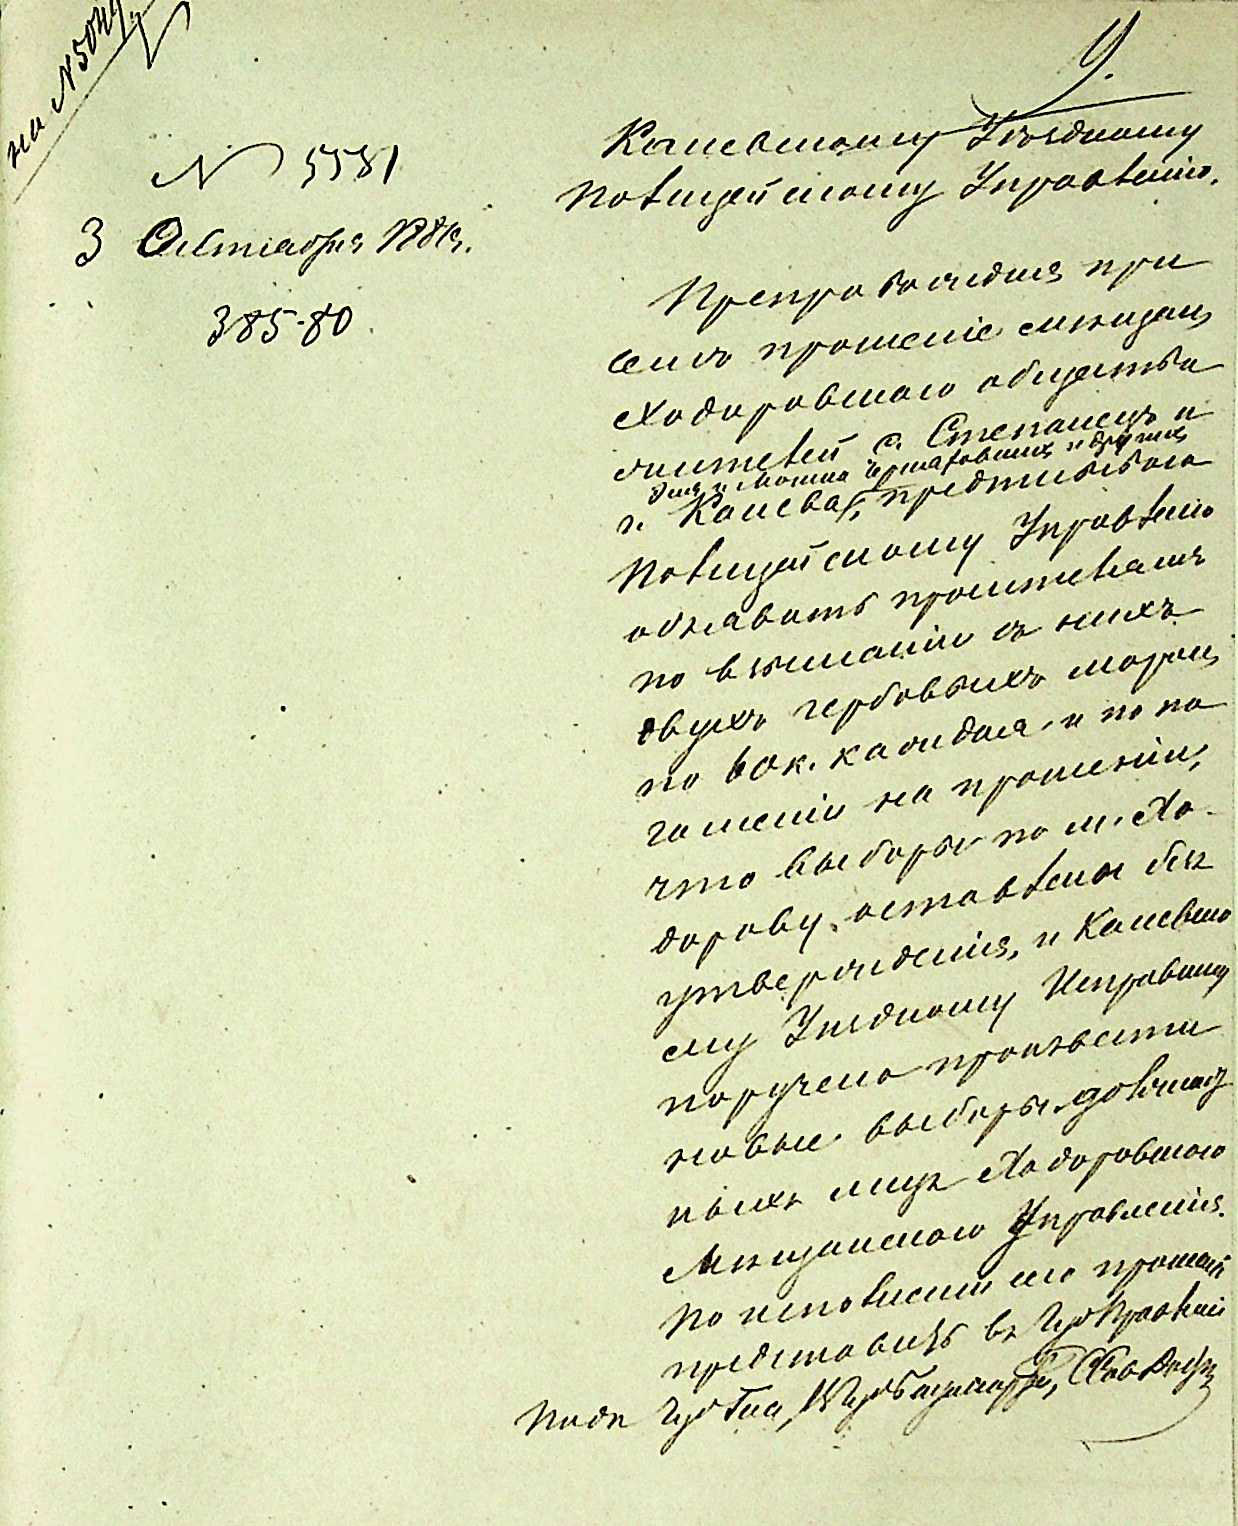 на № 5049
9.
№ 5581
3 Октября 1881 г.
385-80
Каневскому Уѣздному
Полицейскому Управленію.
Препровождая при
семъ прошеніе мѣщанъ
Ходоровскаго общества
жителей с. Степанецъ и
и другихъ
г. Канева, предписываю
Полицейскому Управленію
объявить просителямъ
по взысканіи съ нихъ
двухъ гербовыхъ марокъ
по 60 к. каждая и по по
гашеніи на прошеніи,
что выборы по м. Хо-
дорову оставлены безъ
утвержденія, и Каневско
му Уѣздному Исправнику
поручено произвести
новые выборы должност
ныхъ лицъ Ходоровскаго
Мѣщанскаго Управленія.
По исполненіи сего прошеніе
представить въ Губ Правленіе
Подп